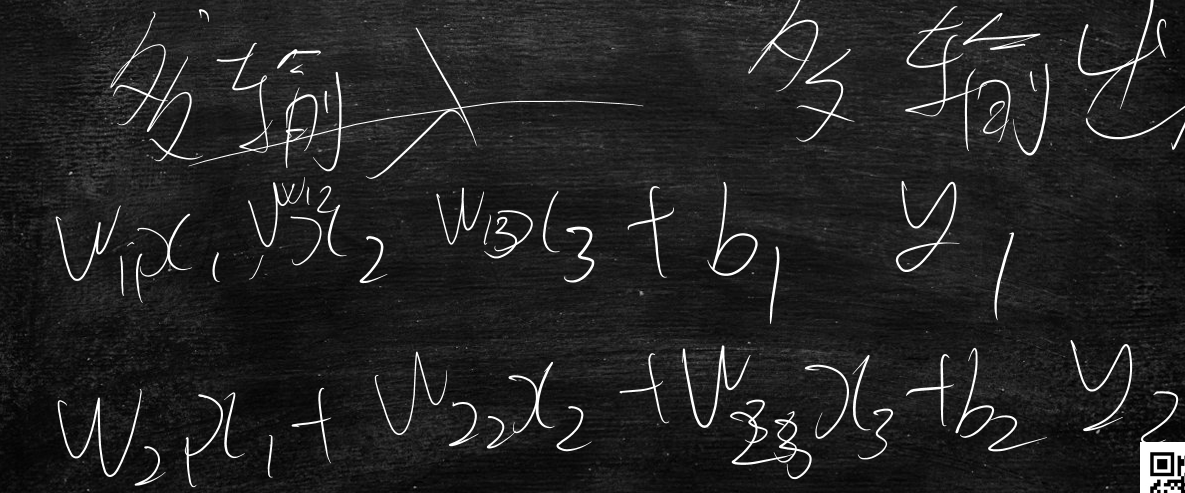 多输入 多输出
w₁₁x₁, w₁₂x₂ w₁₃x₃ + b₁ y₁
w₂₁x₁ + w₂₂x₂ + w₂₃x₃ + b₂ y₂